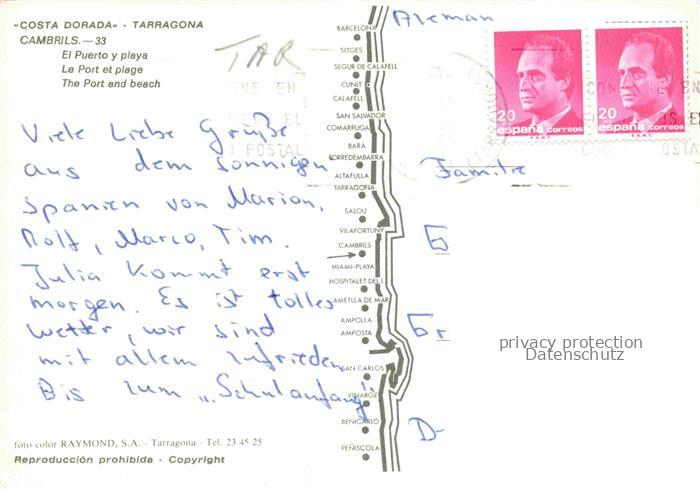 «COSTA DORADA» - TARRAGONA
CAMBRILS.—33
El Puerto y playa
Le Port et plage
The Port and beach
TAR
Viele liebe Grüße
aus dem sonnigen
Spanien von Marion,
Rolf, Marco, Tim.
Julia kommt erst
morgen. Es ist tolles
Wetter, wir sind
mit allem zufrieden
Bis zum „Schulanfang"
foto color RAYMOND, S.A. - Tarragona - Tel. 23 45 25
Reproducción prohibida - Copyright
BARCELONA
SITGES
SEGUR DE CALAFELL
CUNIT
CALAFELL
SAN SALVADOR
COMARRUGA
BARA
TORREDEMBARRA
ALTAFULLA
TARRAGONA
SALOU
VILAFORTUNY
CAMBRILS
MIAMI-PLAYA
HOSPITALET DEL I.
AMETLLA DE MAR
AMPOLLA
AMPOSTA
SAN CARLOS
VINAROZ
BENICARLO
PEÑISCOLA
Aleman
20 españa correos
20 españa correos
Familie
G
Gr
D-
privacy protection
Datenschutz